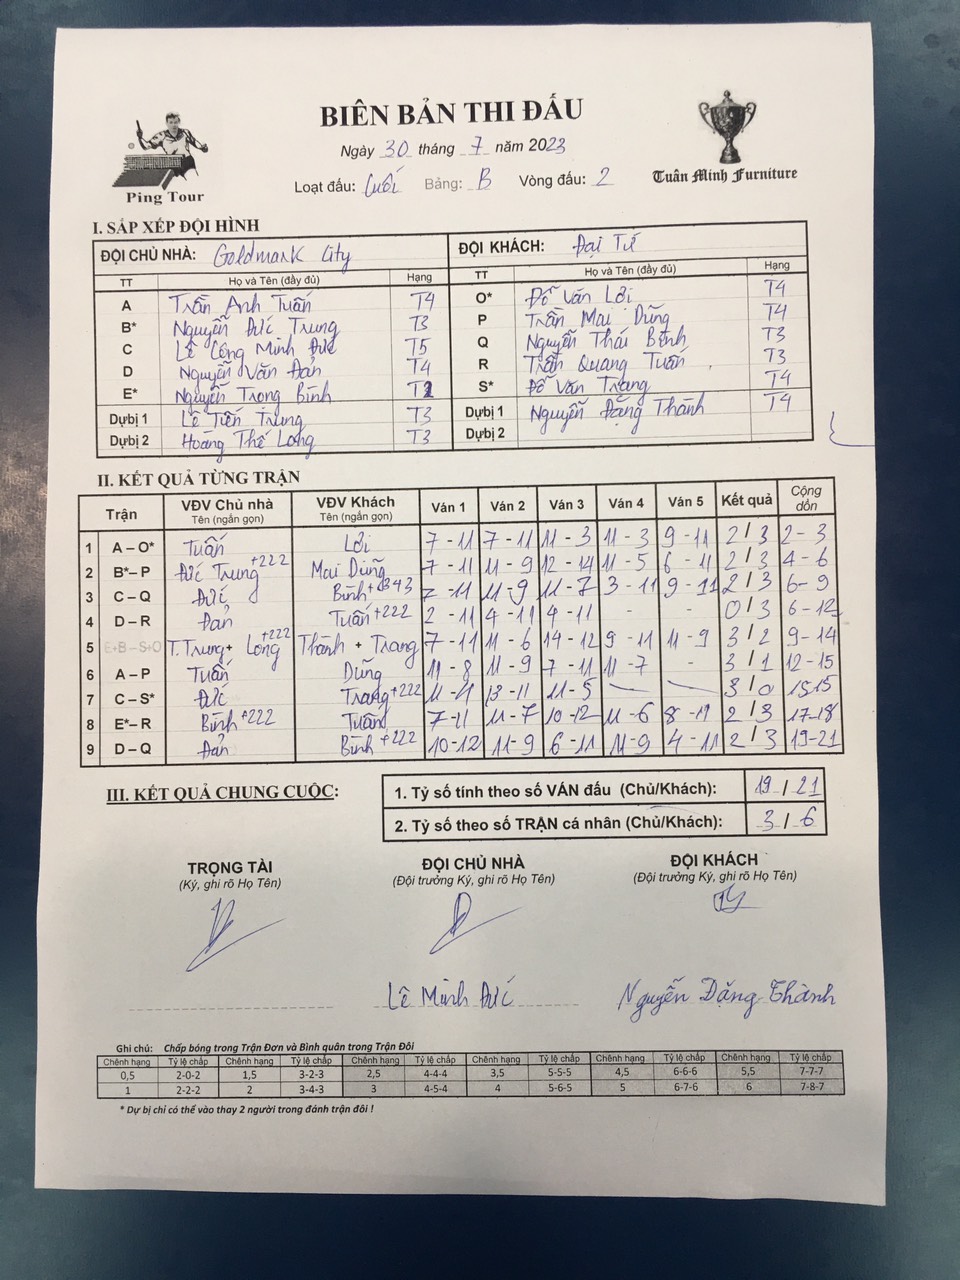 BIÊN BẢN THI ĐẤU
Ping Tour
Ngày 30 tháng 7 năm 2023
Tuân Minh Furniture
Loạt đấu: Cuối Bảng: B Vòng đấu: 2
I. SẮP XẾP ĐỘI HÌNH
ĐỘI CHỦ NHÀ: Goldmark City ĐỘI KHÁCH: Đại Từ
TT Họ và Tên (đầy đủ) Hạng TT Họ và Tên (đầy đủ) Hạng
A Trần Anh Tuấn T4 O* Đỗ Văn Lời T4
B* Nguyễn Đức Trung T3 P Trần Mai Dũng T4
C Lê Công Minh Đức T5 Q Nguyễn Thái Bình T3
D Nguyễn Văn Đản T4 R Trần Quang Tuấn T3
E* Nguyễn Trọng Bình S* Đỗ Văn Trang T4
Dự bị 1 Lê Tiến Trung T3 Dự bị 1 Nguyễn Đặng Thành T4
Dự bị 2 Hoàng Thế Long T3 Dự bị 2
II. KẾT QUẢ TỪNG TRẬN
Trận VĐV Chủ nhà Tên (ngắn gọn) VĐV Khách Tên (ngắn gọn) Ván 1 Ván 2 Ván 3 Ván 4 Ván 5 Kết quả Cộng dồn
1 A – O* Tuấn Lời 7 - 11 7 - 11 11 - 3 11 - 3 9 - 11 2 / 3 2 - 3
2 B*– P Đức Trung +222 Mai Dũng 7 - 11 11 - 9 12 - 14 11 - 5 6 - 11 2 / 3 4 - 6
3 C – Q Đức Bình +343 7 - 11 11 - 9 11 - 7 3 - 11 9 - 11 2 / 3 6 - 9
4 D – R Đản Tuấn +222 2 - 11 4 - 11 4 - 11 - - 0 / 3 6 - 12
5 E+B – S+O T. Trung + Long +222 Thành + Trang 7 - 11 11 - 6 14 - 12 9 - 11 11 - 9 3 / 2 9 - 14
6 A – P Tuấn Dũng 11 - 8 11 - 9 7 - 11 11 - 7 - 3 / 1 12 - 15
7 C – S* Đức Trang +222 13 - 11 11 - 5 – – 3 / 0 15 15
8 E*– R Bình +222 Tuấn 7 - 11 11 - 7 10 - 12 11 - 6 8 - 11 2 / 3 17 - 18
9 D – Q Đản Bình +222 10 - 12 11 - 9 6 - 11 11 - 9 4 - 11 2 / 3 19 - 21
III. KẾT QUẢ CHUNG CUỘC:
1. Tỷ số tính theo số VÁN đấu (Chủ/Khách): 19 / 21
2. Tỷ số theo số TRẬN cá nhân (Chủ/Khách): 3 / 6
TRỌNG TÀI ĐỘI CHỦ NHÀ ĐỘI KHÁCH
(Ký, ghi rõ Họ Tên) (Đội trưởng Ký, ghi rõ Họ Tên) (Đội trưởng Ký, ghi rõ Họ Tên)
Lê Minh Đức Nguyễn Đặng Thành
Ghi chú: Chấp bóng trong Trận Đơn và Bình quân trong Trận Đôi
Chênh hạng Tỷ lệ chấp Chênh hạng Tỷ lệ chấp Chênh hạng Tỷ lệ chấp Chênh hạng Tỷ lệ chấp Chênh hạng Tỷ lệ chấp Chênh hạng Tỷ lệ chấp
0,5 2-0-2 1,5 3-2-3 2,5 4-4-4 3,5 5-5-5 4,5 6-6-6 5,5 7-7-7
1 2-2-2 2 3-4-3 3 4-5-4 4 5-6-5 5 6-7-6 6 7-8-7
* Dự bị chỉ có thể vào thay 2 người trong đánh trận đôi !